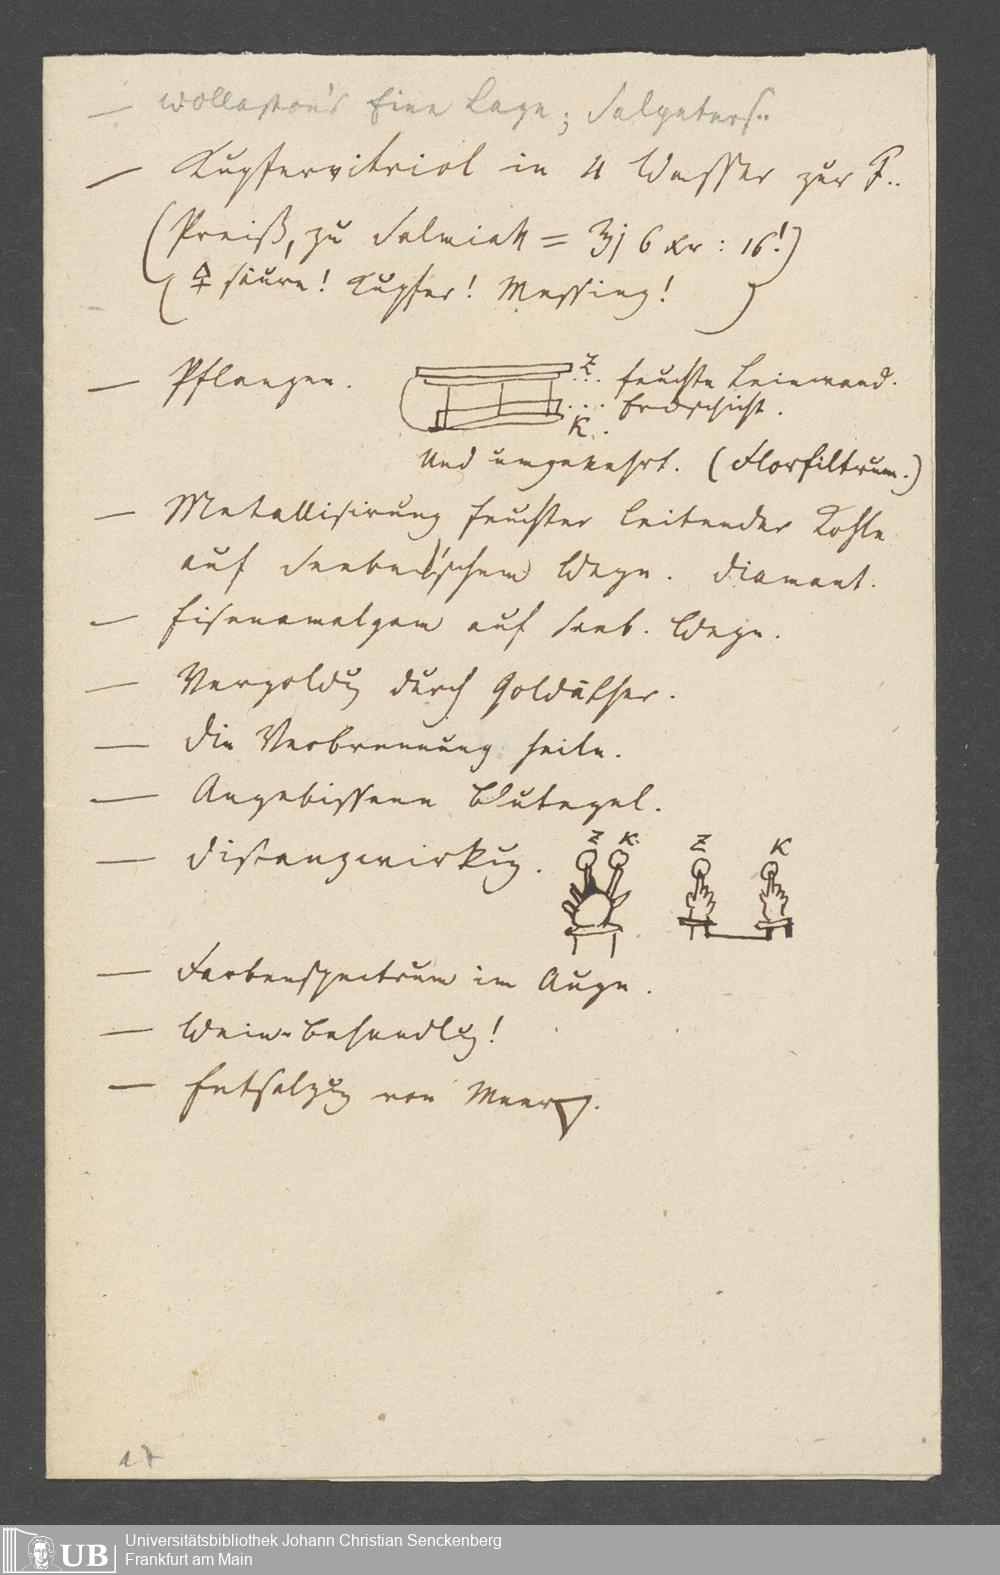 — Wollaston's Eine Lage; Salpeters..
— Kupfervitriol in 4 Wasser zur F..
(Preiß, zu Salmiak = ʒj 6 Kr: 16!)
( säure! Kupfer! Messing! )
— Pflanzen.
Z
... feuchte Leinwand.
... Erdschicht.
K.
Und umgekehrt. (Florfiltrum.)
— Metallisirung feuchter leitender Kohle
auf Seebeck'schem Wege. Diamant.
— Eisenamalgam auf Seeb. Wege.
— Vergoldug durch Goldäther.
— Die Verbrennung heile.
— Angebissene Blutegel.
— Distanzwirkug.
Z K. Z K
— Farbenspectrum im Auge.
— Wein-Behandlug!
— Entsalzug von Meer▽.
17
UB
Universitätsbibliothek Johann Christian Senckenberg
Frankfurt am Main